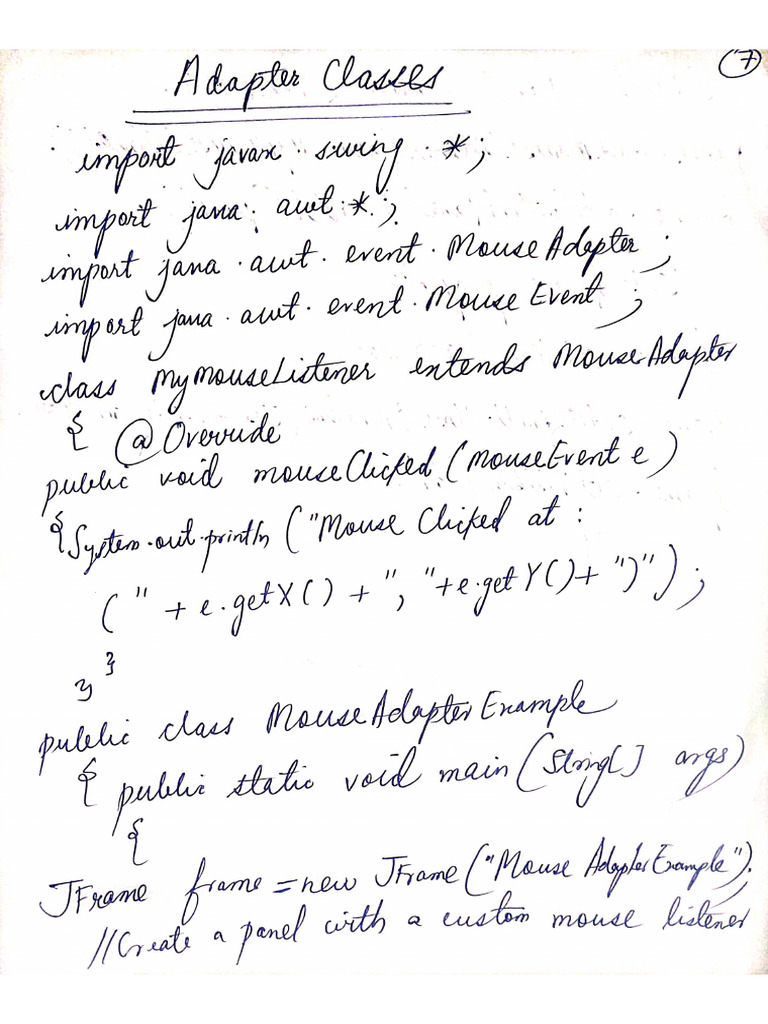 7
Adapter Classes
import javax. swing. *;
import java. awt. *;
import java. awt. event. MouseAdapter;
import java. awt. event. MouseEvent;
class MyMouseListener extends MouseAdapter
{ @Override
public void mouseClicked (MouseEvent e)
{ System.out.println ("Mouse Clicked at :
(" + e.getX() + ", "+e.getY()+ ")");
}
}
public class MouseAdapterExample
{ public static void main (String[] args)
{
JFrame frame = new JFrame ("Mouse AdapterExample");
//Create a panel with a custom mouse listener